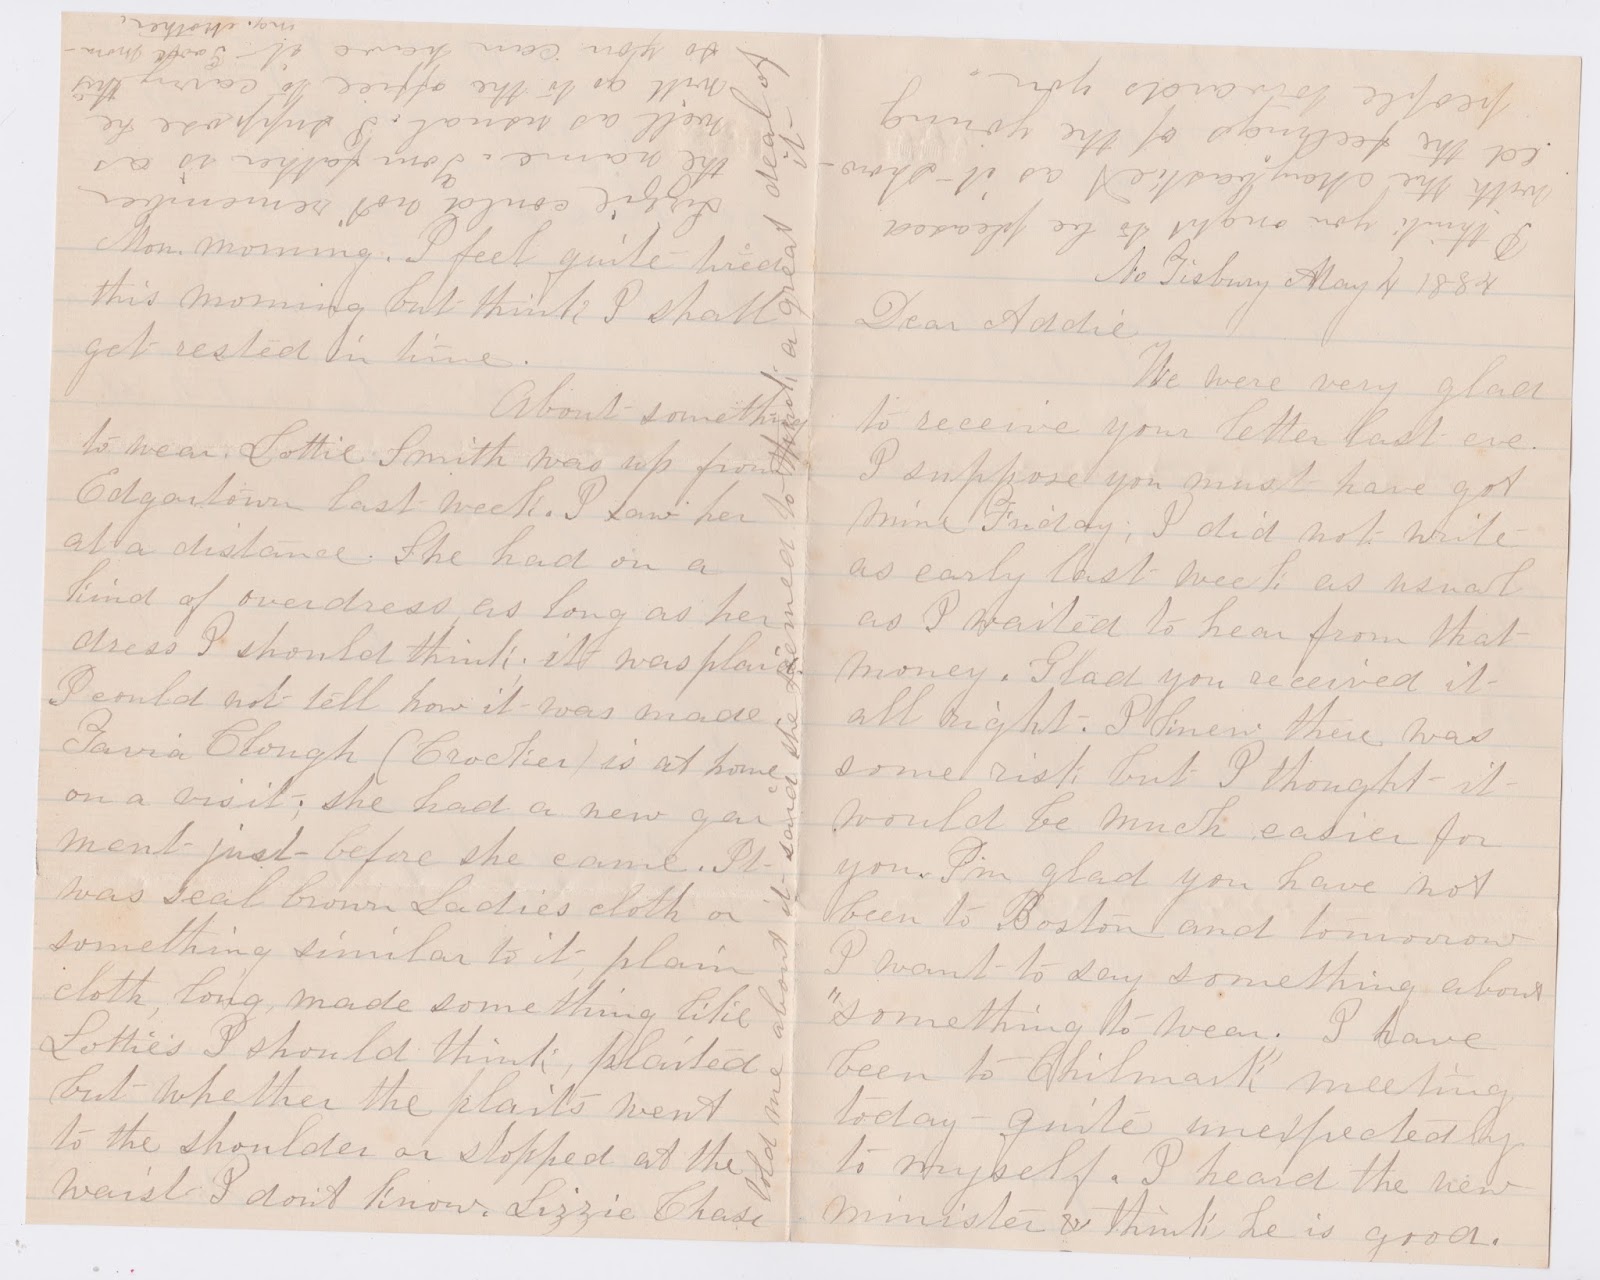 No Tisbury May 4 1884
Dear Addie
We were very glad
to receive your letter last eve.
I suppose you must have got
mine Friday; I did not write
as early last week as usual
as I waited to hear from that
money. Glad you received it
all right. I knew there was
some risk but I thought it
would be much easier for
you. I'm glad you have not
been to Boston and tomorrow
I want to say something about
"something to wear." I have
been to Chilmark meeting
today quite unexpectedly
to myself. I heard the new
minister & think he is good.
I think you ought to be pleased
with the Maybasket as it show-
ed the feelings of the young
people towards you.
Mon. morning. I feel quite tired
this morning but think I shall
get rested in time.
About something
to wear. Lottie Smith was up from
Edgartown last week. I saw her
at a distance. She had on a
kind of overdress as long as her
dress I should think; it was plaid.
I could not tell how it was made.
Tavia Clough (Crocker) is at home
on a visit; she had a new gar
ment just before she came. It
was seal brown Ladies cloth or
something similar to it, plain
cloth, long, made something like
Lottie's I should think, plaited
but whether the plaits went
to the shoulder or stopped at the
waist I don't know. Lizzie Chase
told me about it said she seemed to think a great deal of
it
Lizzie could not remember
the name. Your father is as
well as usual. I suppose he
will go to the office to carry this
so you can have it Good morn-
ing. Mother.